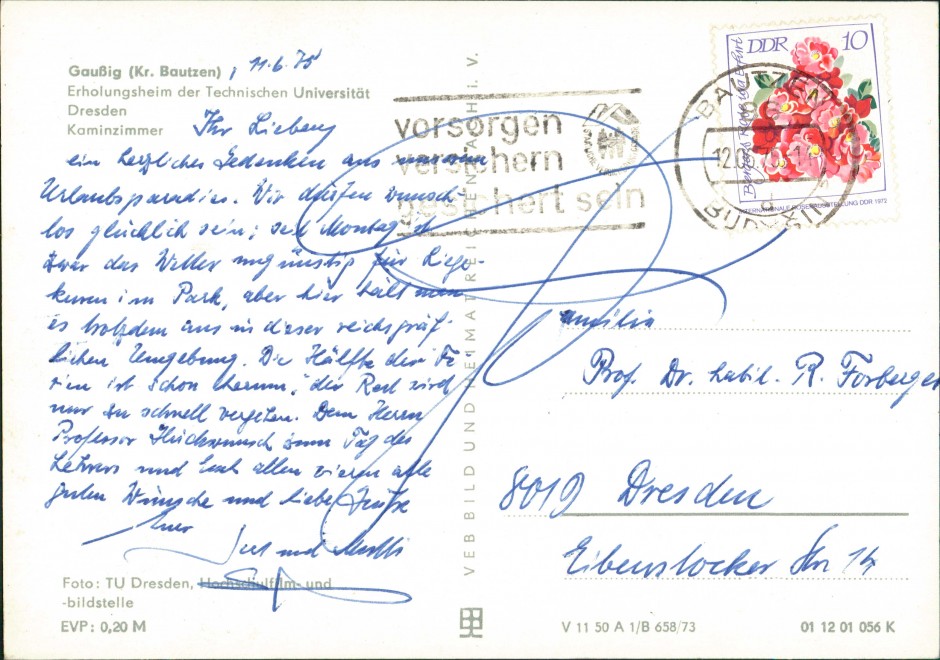 Gaußig (Kr. Bautzen), 11.6.75
Erholungsheim der Technischen Universität
Dresden
Kaminzimmer
Ihr Lieben,
ein herzliches Gedenken aus
Urlaubsparadies. Wir dürfen wunsch-
los glücklich sein; seit Montag ist
zwar das Wetter ungünstig für Liege-
kuren im Park, aber hier hält man
es trotzdem aus in dieser reichsgräf-
lichen Umgebung. Die Hälfte der Fe-
rien ist schon herum, der Rest wird
nur zu schnell vergehen. Dem Herrn
Professor Glückwunsch zum Tag des
Lehrers und Euch allen vieren alle
guten Wünsche und liebe Grüße
Eure
und
Foto: TU Dresden, Hochschulfilm- und
-bildstelle
EVP: 0,20 M
VEB BILD UND HEIMAT REICHENBACH i. V.
vorsorgen
versichern
gesichert sein
BAUTZEN
12.0
DDR 10
INTERNATIONALE ROSENAUSSTELLUNG DDR 1972
Familie
Prof. Dr. habil. R. Forberger
8019 Dresden
Eibenstocker Str. 14
V 11 50 A 1/B 658/73
01 12 01 056 K